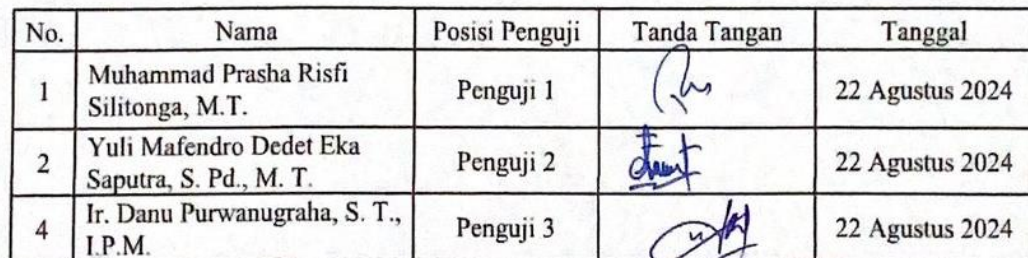 No. Nama Posisi Penguji Tanda Tangan Tanggal
1 Muhammad Prasha Risfi Silitonga, M.T. Penguji 1 22 Agustus 2024
2 Yuli Mafendro Dedet Eka Saputra, S. Pd., M. T. Penguji 2 22 Agustus 2024
4 Ir. Danu Purwanugraha, S. T., I.P.M. Penguji 3 22 Agustus 2024